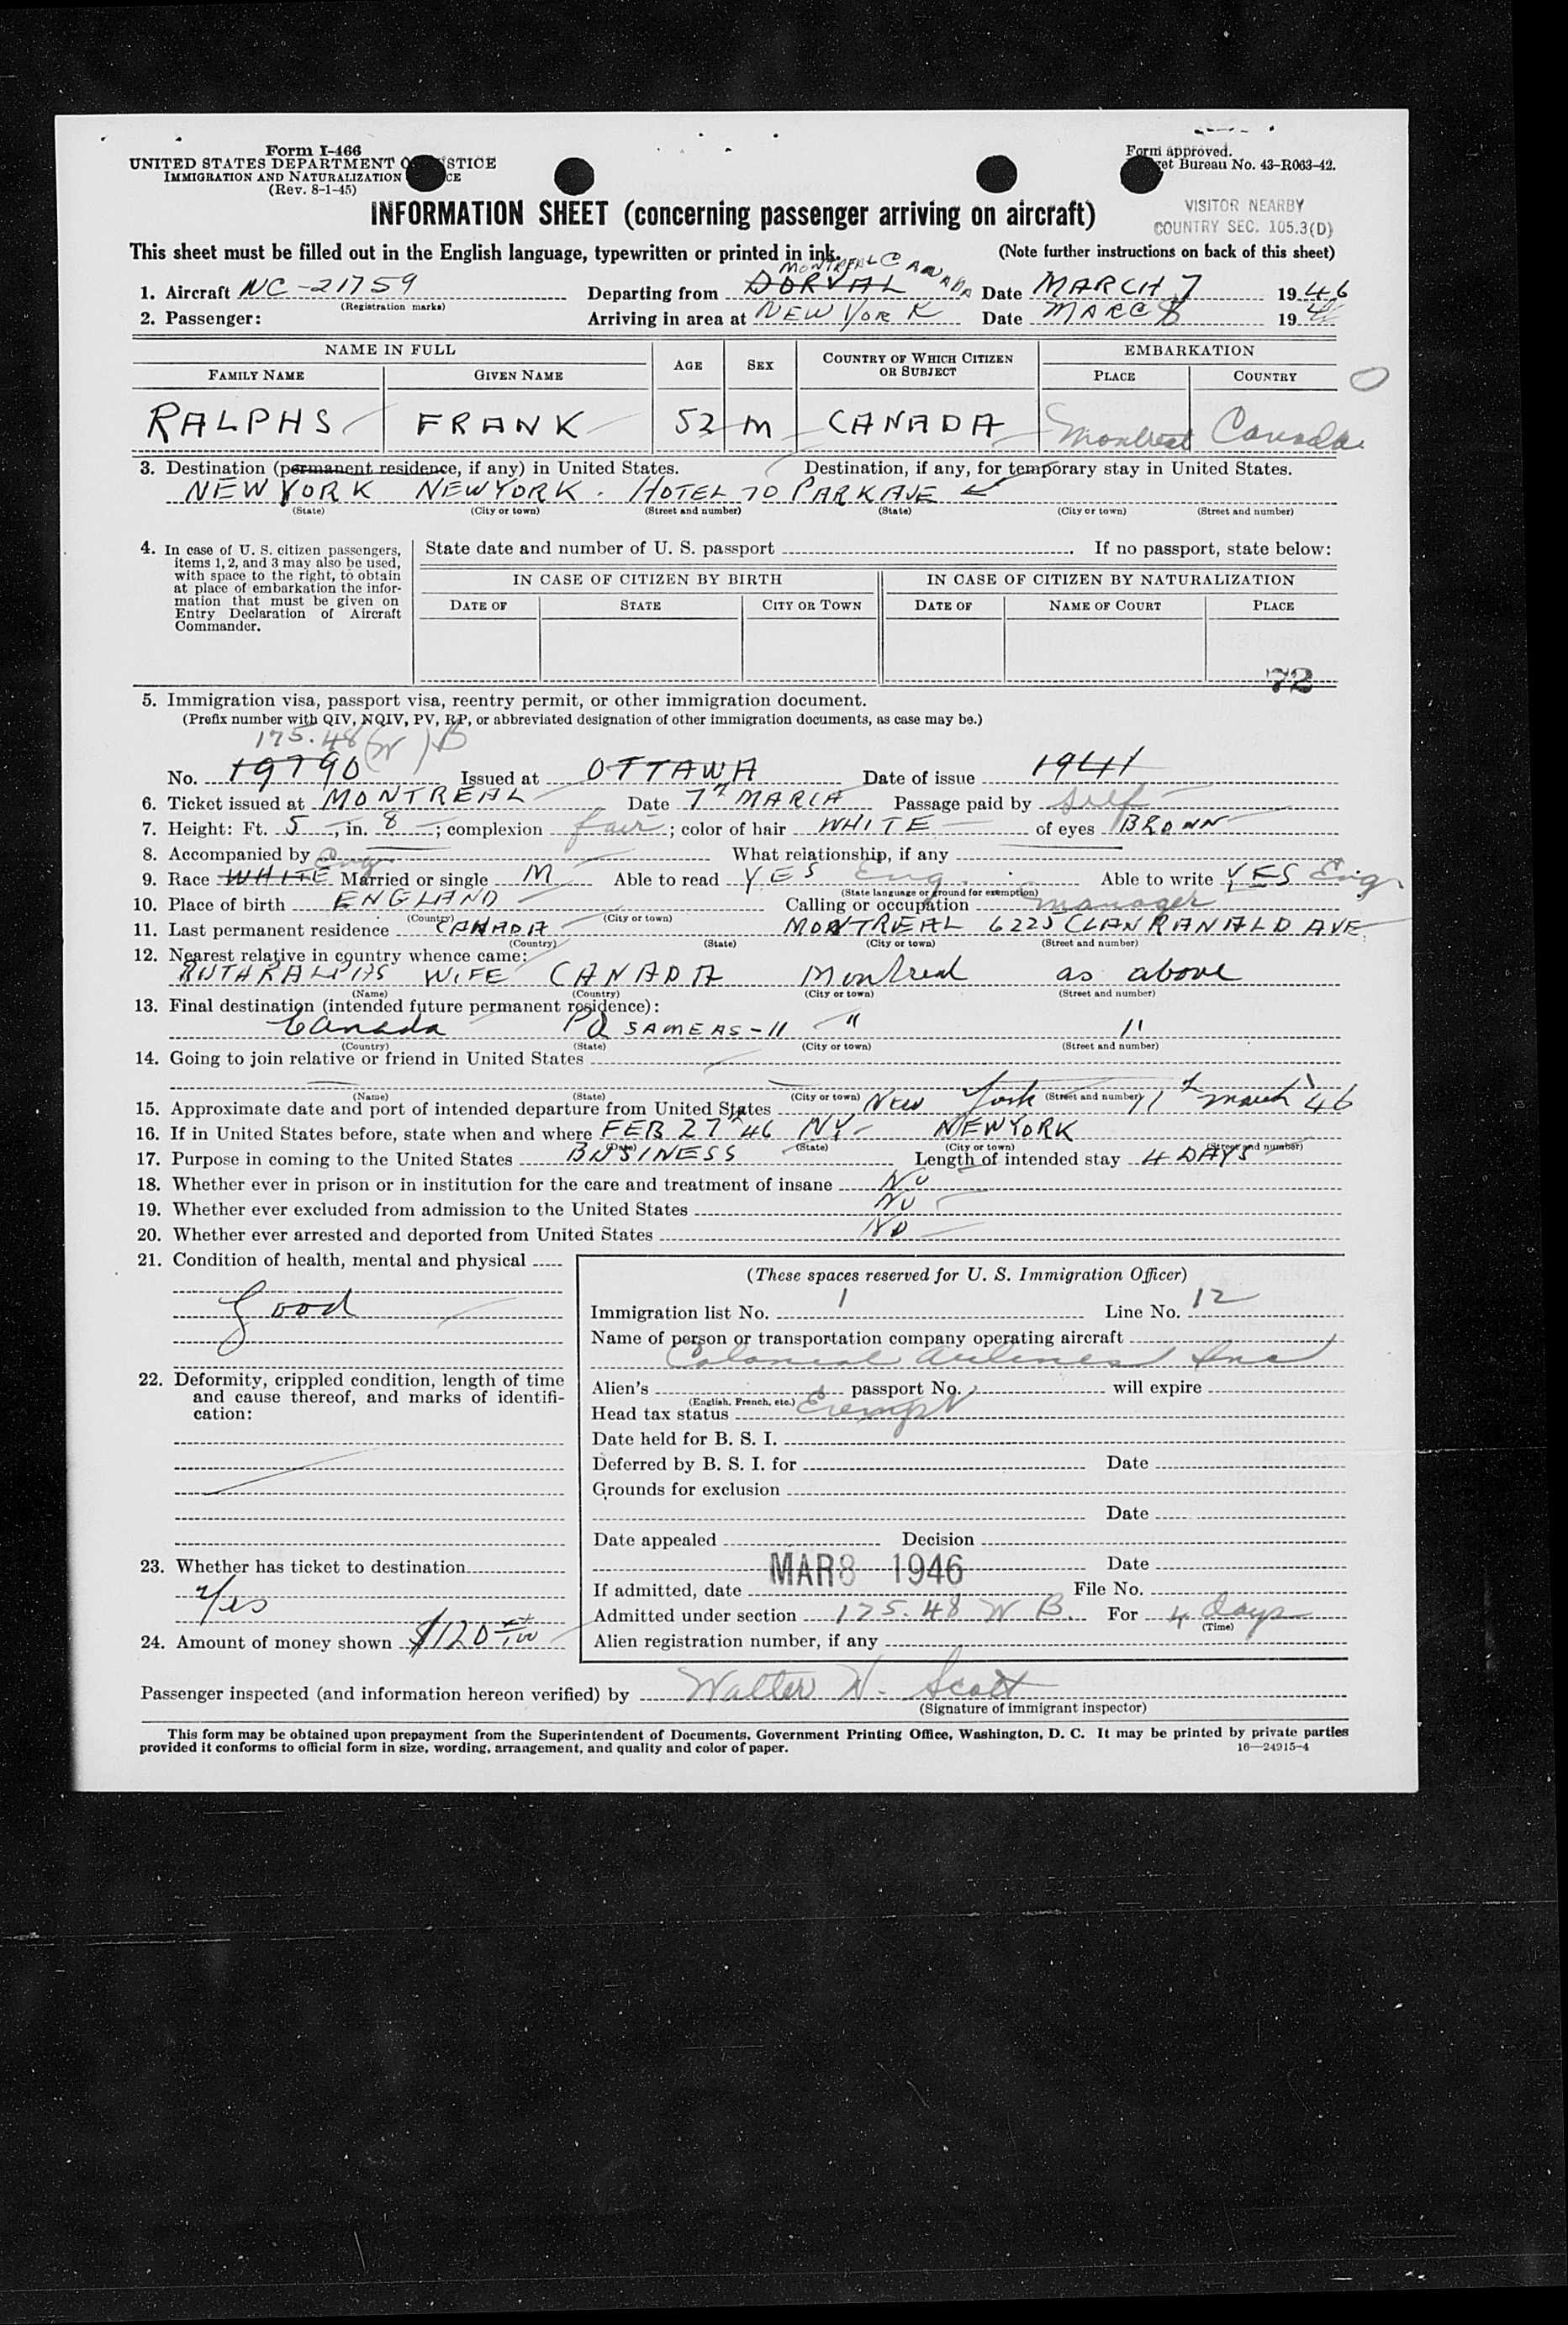 Form I-466
UNITED STATES DEPARTMENT O STICE
IMMIGRATION AND NATURALIZATION CE
(Rev. 8-1-45)
Form approved.
et Bureau No. 43-R063-42.
INFORMATION SHEET (concerning passenger arriving on aircraft)
VISITOR NEARBY
COUNTRY SEC. 105.3(D)
This sheet must be filled out in the English language, typewritten or printed in ink.
(Note further instructions on back of this sheet)
MONTREAL CANADA
1. Aircraft NC-21759 Departing from DORVAL Date MARCH 7 1946
(Registration marks)
2. Passenger: Arriving in area at NEW YORK Date MARC 8 19 46
NAME IN FULL AGE SEX COUNTRY OF WHICH CITIZEN OR SUBJECT EMBARKATION
FAMILY NAME GIVEN NAME PLACE COUNTRY
RALPHS FRANK 52 M CANADA Montreal Canada
3. Destination (permanent residence, if any) in United States. Destination, if any, for temporary stay in United States.
NEW YORK NEW YORK. HOTEL 70 PARK AVE
(State) (City or town) (Street and number) (State) (City or town) (Street and number)
4. In case of U. S. citizen passengers, items 1, 2, and 3 may also be used, with space to the right, to obtain at place of embarkation the information that must be given on Entry Declaration of Aircraft Commander.
State date and number of U. S. passport . If no passport, state below:
IN CASE OF CITIZEN BY BIRTH IN CASE OF CITIZEN BY NATURALIZATION
DATE OF STATE CITY OR TOWN DATE OF NAME OF COURT PLACE
72
5. Immigration visa, passport visa, reentry permit, or other immigration document.
(Prefix number with QIV, NQIV, PV, RP, or abbreviated designation of other immigration documents, as case may be.)
175.48 (W) B
No. 19790 Issued at OTTAWA Date of issue 1941
6. Ticket issued at MONTREAL Date 7th MARCH Passage paid by self
7. Height: Ft. 5, in. 8; complexion fair; color of hair WHITE of eyes BROWN
8. Accompanied by What relationship, if any
Eng
9. Race WHITE Married or single M Able to read YES Eng. Able to write YES Eng.
(State language or ground for exemption)
10. Place of birth ENGLAND Calling or occupation manager
(Country) (City or town)
11. Last permanent residence CANADA MONTREAL 6225 CLAN RANALD AVE
(Country) (State) (City or town) (Street and number)
12. Nearest relative in country whence came:
RUTH RALPHS WIFE CANADA Montreal as above
(Name) (Country) (City or town) (Street and number)
13. Final destination (intended future permanent residence):
Canada PQ SAME AS-11 " 11
(Country) (State) (City or town) (Street and number)
14. Going to join relative or friend in United States
(Name) (State) (City or town) (Street and number)
15. Approximate date and port of intended departure from United States New York 11th March 46
16. If in United States before, state when and where FEB 27th 46 NY- NEW YORK
(Date) (State) (City or town) (Street and number)
17. Purpose in coming to the United States BUSINESS Length of intended stay 4 DAYS
18. Whether ever in prison or in institution for the care and treatment of insane NO
19. Whether ever excluded from admission to the United States NO
20. Whether ever arrested and deported from United States NO
21. Condition of health, mental and physical
Good
22. Deformity, crippled condition, length of time and cause thereof, and marks of identification:
23. Whether has ticket to destination
Yes
24. Amount of money shown $120 xx/100
(These spaces reserved for U. S. Immigration Officer)
Immigration list No. 1 Line No. 12
Name of person or transportation company operating aircraft
Colonial Airlines Inc
Alien's passport No. will expire
(English, French, etc.)
Head tax status Exempt
Date held for B. S. I.
Deferred by B. S. I. for Date
Grounds for exclusion
Date
Date appealed Decision
Date
If admitted, date MAR 8 1946 File No.
Admitted under section 175.48 W B. For 4 Days
(Time)
Alien registration number, if any
Passenger inspected (and information hereon verified) by Walter W. Scott
(Signature of immigrant inspector)
This form may be obtained upon prepayment from the Superintendent of Documents, Government Printing Office, Washington, D. C. It may be printed by private parties
provided it conforms to official form in size, wording, arrangement, and quality and color of paper.
16—24915-4